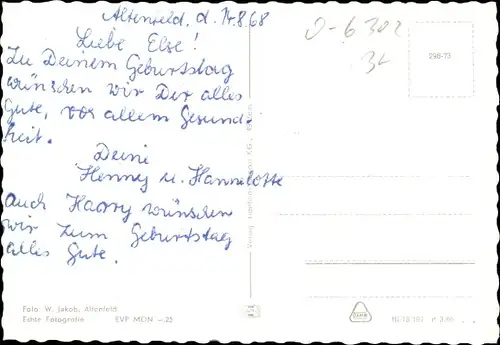 Altenfeld, d. 14.8.68
Liebe Else!
Zu Deinem Geburtstag
wünschen wir Dir alles
Gute, vor allem Gesund-
heit.
Deine
Henny u. Hannelotte
auch Harry wünschen
wir zum Geburtstag
alles Gute.
O-6302
298-73
Foto W. Jakob, Altenfeld
Echte Fotografie EVP MDN -.25